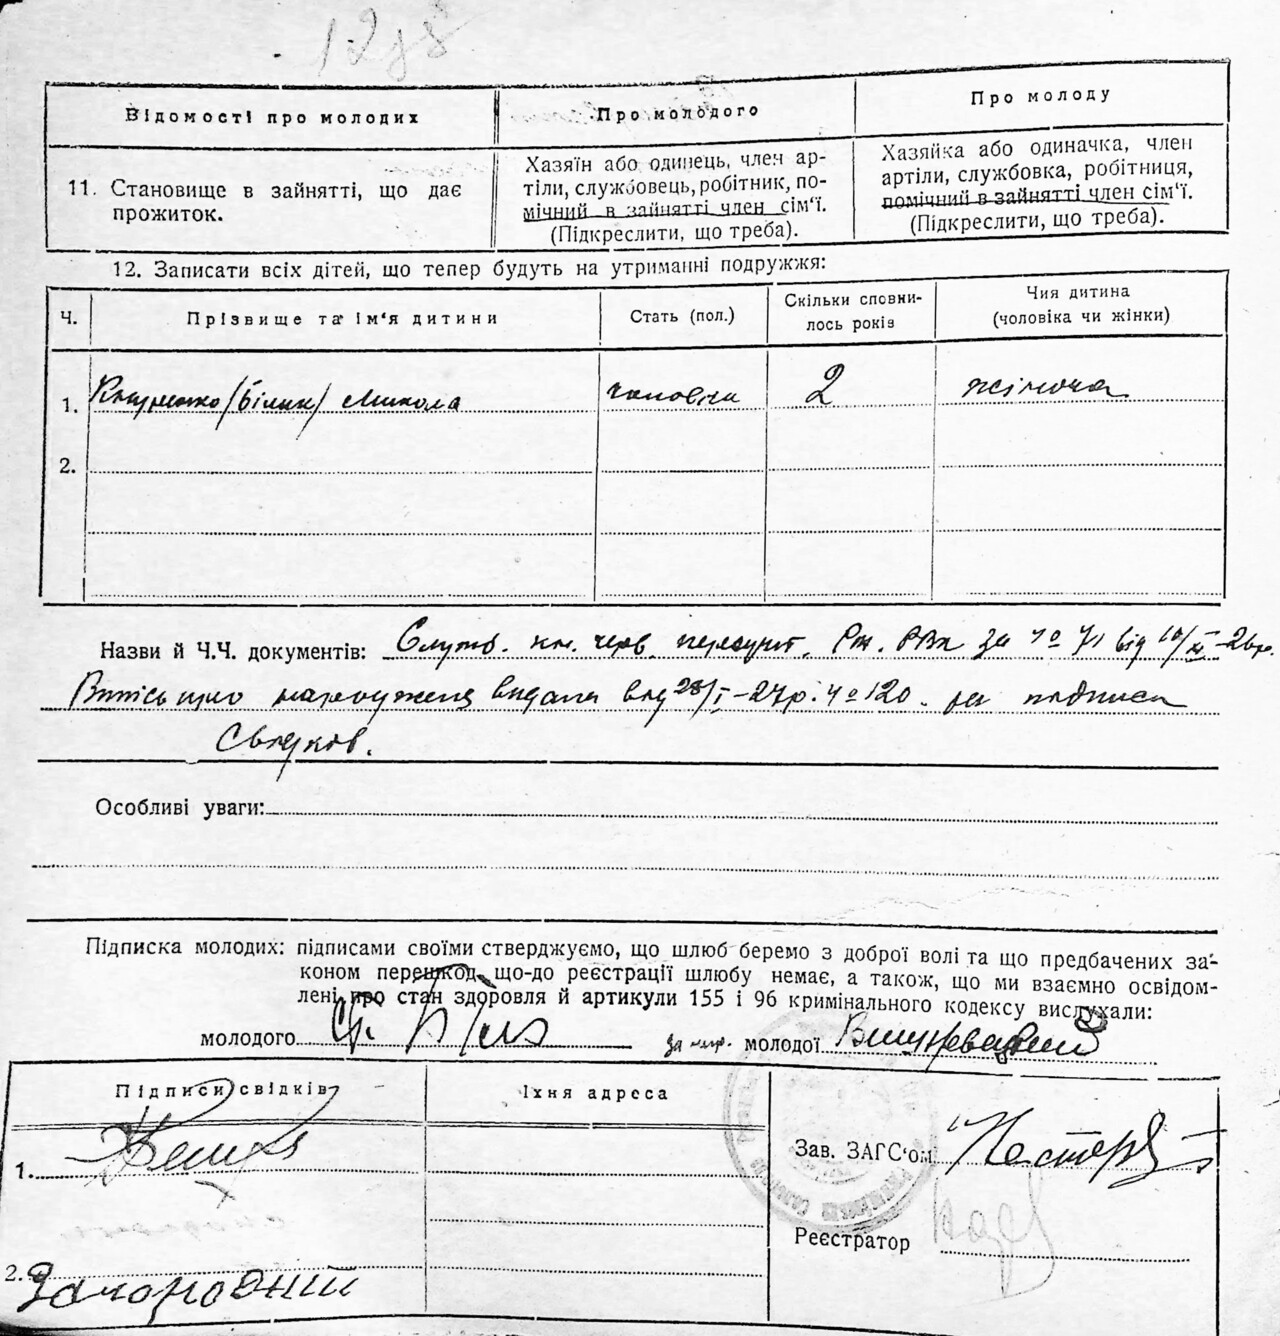 Відомості про молодих
Про молодого
Про молоду
11. Становище в зайнятті, що дає
прожиток.
Хазяїн або одинець, член ар-
тіли, службовець, робітник, по-
мічний в зайнятті член сім'ї.
(Підкреслити, що треба).
Хазяйка або одиначка, член
артіли, службовка, робітниця,
помічний в зайнятті член сім'ї.
(Підкреслити, що треба).
12. Записати всіх дітей, що тепер будуть на утриманні подружжя:
Ч.
Прізвище та ім'я дитини
Стать (пол.)
Скільки сповни-
лось років
Чия дитина
(чоловіка чи жінки)
1. /Білик/ Микола
2
жіноча
2.
Назви й Ч.Ч. документів: Служб. кн. черв. за чо 71 від
видана 28/I-27р. чо 120. підписа
Свідків.
Особливі уваги:
Підписка молодих: підписами своїми стверджуємо, що шлюб беремо з доброї волі та що предбачених за-
коном перешкод що-до реєстрації шлюбу немає, а також, що ми взаємно освідом-
лені про стан здоровля й артикули 155 і 96 кримінального кодексу вислухали:
молодого
за молодої
Підписи свідків
Їхня адреса
1.
Зав. ЗАГС'ом
Реєстратор
2. Загородній